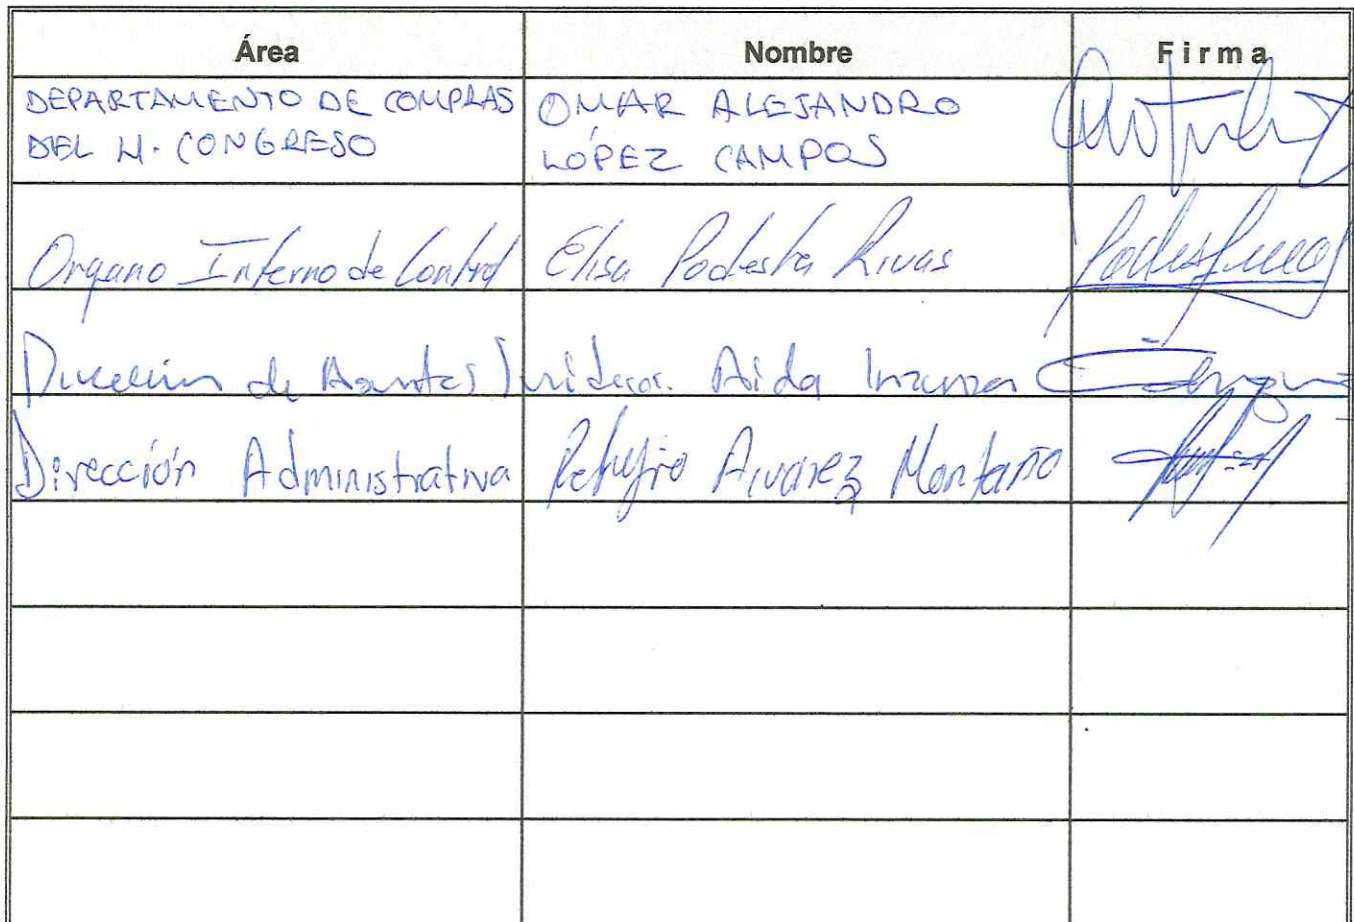 Área Nombre Firma
DEPARTAMENTO DE COMPRAS OMAR ALEJANDRO
DEL H. CONGRESO LÓPEZ CAMPOS
Organo Interno de Control Elisa Podesta Rivas
Dirección de Asuntos Jurídicos. Aida
Dirección Administrativa Refugio Alvarez Montaño